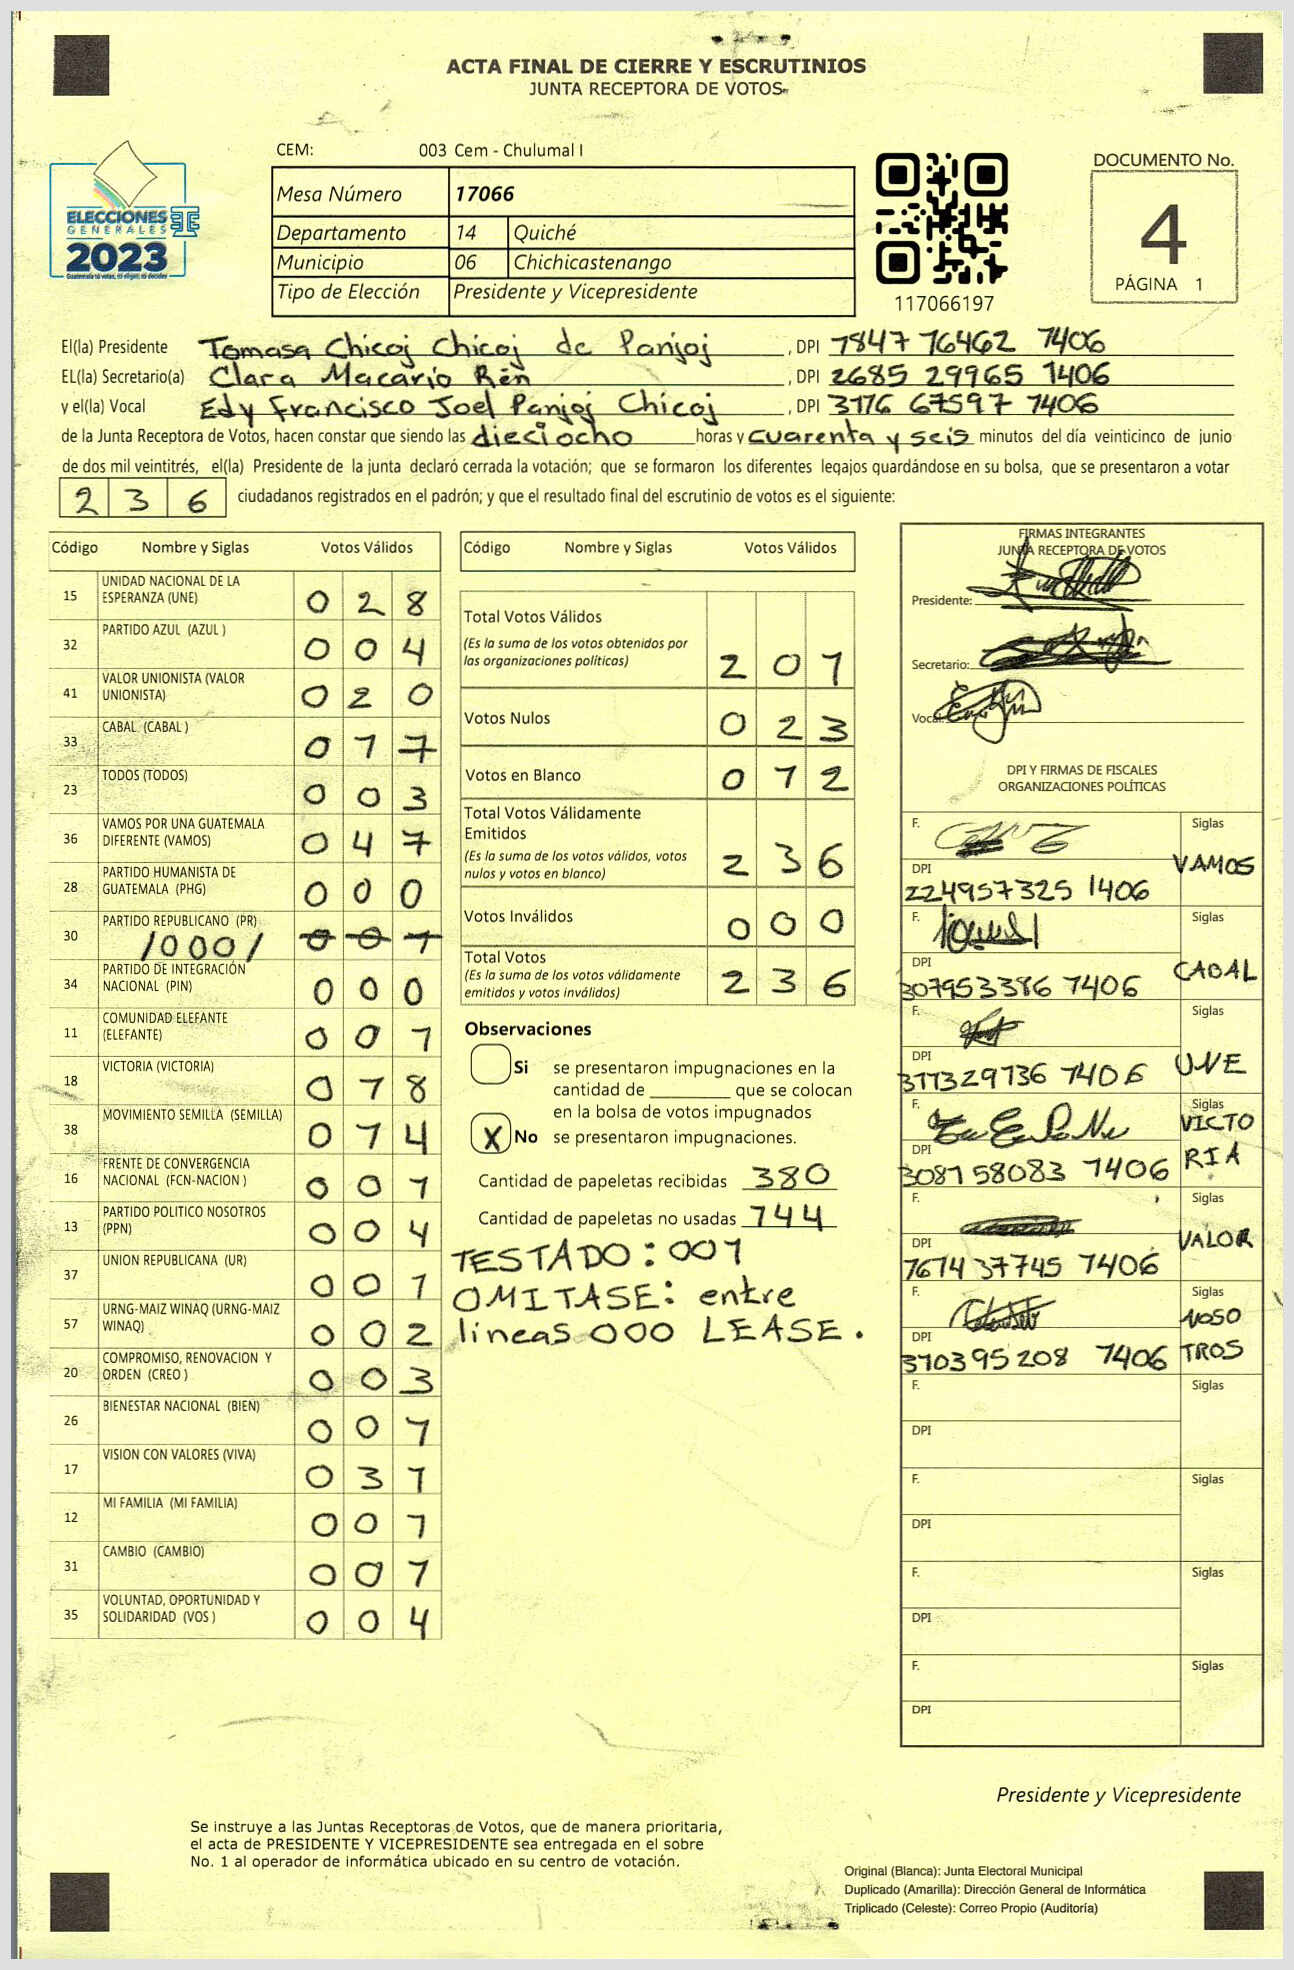 ACTA FINAL DE CIERRE Y ESCRUTINIOS
JUNTA RECEPTORA DE VOTOS
CEM: 003 Cem - Chulumal I
ELECCIONES
GENERALES
2023
Mesa Número 17066
Departamento 14 Quiché
Municipio 06 Chichicastenango
Tipo de Elección Presidente y Vicepresidente
117066197
DOCUMENTO No.
4
PÁGINA 1
El(la) Presidente Tomasa Chicoj Chicoj de Panjoj , DPI 1847 16462 1406
EL(la) Secretario(a) Clara Macario Rén , DPI 2685 29965 1406
y el(la) Vocal Edy Francisco Joel Panjoj Chicoj , DPI 3176 67597 1406
de la Junta Receptora de Votos, hacen constar que siendo las dieciocho horas y cuarenta y seis minutos del día veinticinco de junio
de dos mil veintitrés, el(la) Presidente de la junta declaró cerrada la votación; que se formaron los diferentes legajos guardándose en su bolsa, que se presentaron a votar
236 ciudadanos registrados en el padrón; y que el resultado final del escrutinio de votos es el siguiente:
Código Nombre y Siglas Votos Válidos
15 UNIDAD NACIONAL DE LA ESPERANZA (UNE) 028
32 PARTIDO AZUL (AZUL ) 004
41 VALOR UNIONISTA (VALOR UNIONISTA) 020
33 CABAL (CABAL ) 017
23 TODOS (TODOS) 003
36 VAMOS POR UNA GUATEMALA DIFERENTE (VAMOS) 047
28 PARTIDO HUMANISTA DE GUATEMALA (PHG) 000
30 PARTIDO REPUBLICANO (PR) /000/ 001
34 PARTIDO DE INTEGRACIÓN NACIONAL (PIN) 000
11 COMUNIDAD ELEFANTE (ELEFANTE) 001
18 VICTORIA (VICTORIA) 018
38 MOVIMIENTO SEMILLA (SEMILLA) 014
16 FRENTE DE CONVERGENCIA NACIONAL (FCN-NACION ) 001
13 PARTIDO POLITICO NOSOTROS (PPN) 004
37 UNION REPUBLICANA (UR) 001
57 URNG-MAIZ WINAQ (URNG-MAIZ WINAQ) 002
20 COMPROMISO, RENOVACION Y ORDEN (CREO ) 003
26 BIENESTAR NACIONAL (BIEN) 001
17 VISION CON VALORES (VIVA) 031
12 MI FAMILIA (MI FAMILIA) 001
31 CAMBIO (CAMBIO) 001
35 VOLUNTAD, OPORTUNIDAD Y SOLIDARIDAD (VOS ) 004
Código Nombre y Siglas Votos Válidos
Total Votos Válidos
(Es la suma de los votos obtenidos por
las organizaciones políticas) 201
Votos Nulos 023
Votos en Blanco 012
Total Votos Válidamente
Emitidos
(Es la suma de los votos válidos, votos
nulos y votos en blanco) 236
Votos Inválidos 000
Total Votos
(Es la suma de los votos válidamente
emitidos y votos inválidos) 236
Observaciones
Si se presentaron impugnaciones en la
cantidad de ________ que se colocan
en la bolsa de votos impugnados
X No se presentaron impugnaciones.
Cantidad de papeletas recibidas 380
Cantidad de papeletas no usadas 144
TESTADO: 001
OMITASE: entre
lineas 000 LEASE.
FIRMAS INTEGRANTES
JUNTA RECEPTORA DE VOTOS
Presidente:
Secretario:
Vocal:
DPI Y FIRMAS DE FISCALES
ORGANIZACIONES POLÍTICAS
F. Siglas VAMOS
DPI 224957325 1406
F. Siglas CABAL
DPI 307953386 1406
F. Siglas UNE
DPI 311329136 1406
F. Siglas VICTORIA
DPI 308158083 1406
F. Siglas VALOR
DPI 1614 37745 1406
F. Siglas NOSOTROS
DPI 310395208 1406
F. Siglas
DPI
F. Siglas
DPI
F. Siglas
DPI
F. Siglas
DPI
Presidente y Vicepresidente
Se instruye a las Juntas Receptoras de Votos, que de manera prioritaria,
el acta de PRESIDENTE Y VICEPRESIDENTE sea entregada en el sobre
No. 1 al operador de informática ubicado en su centro de votación.
Original (Blanca): Junta Electoral Municipal
Duplicado (Amarilla): Dirección General de Informática
Triplicado (Celeste): Correo Propio (Auditoría)